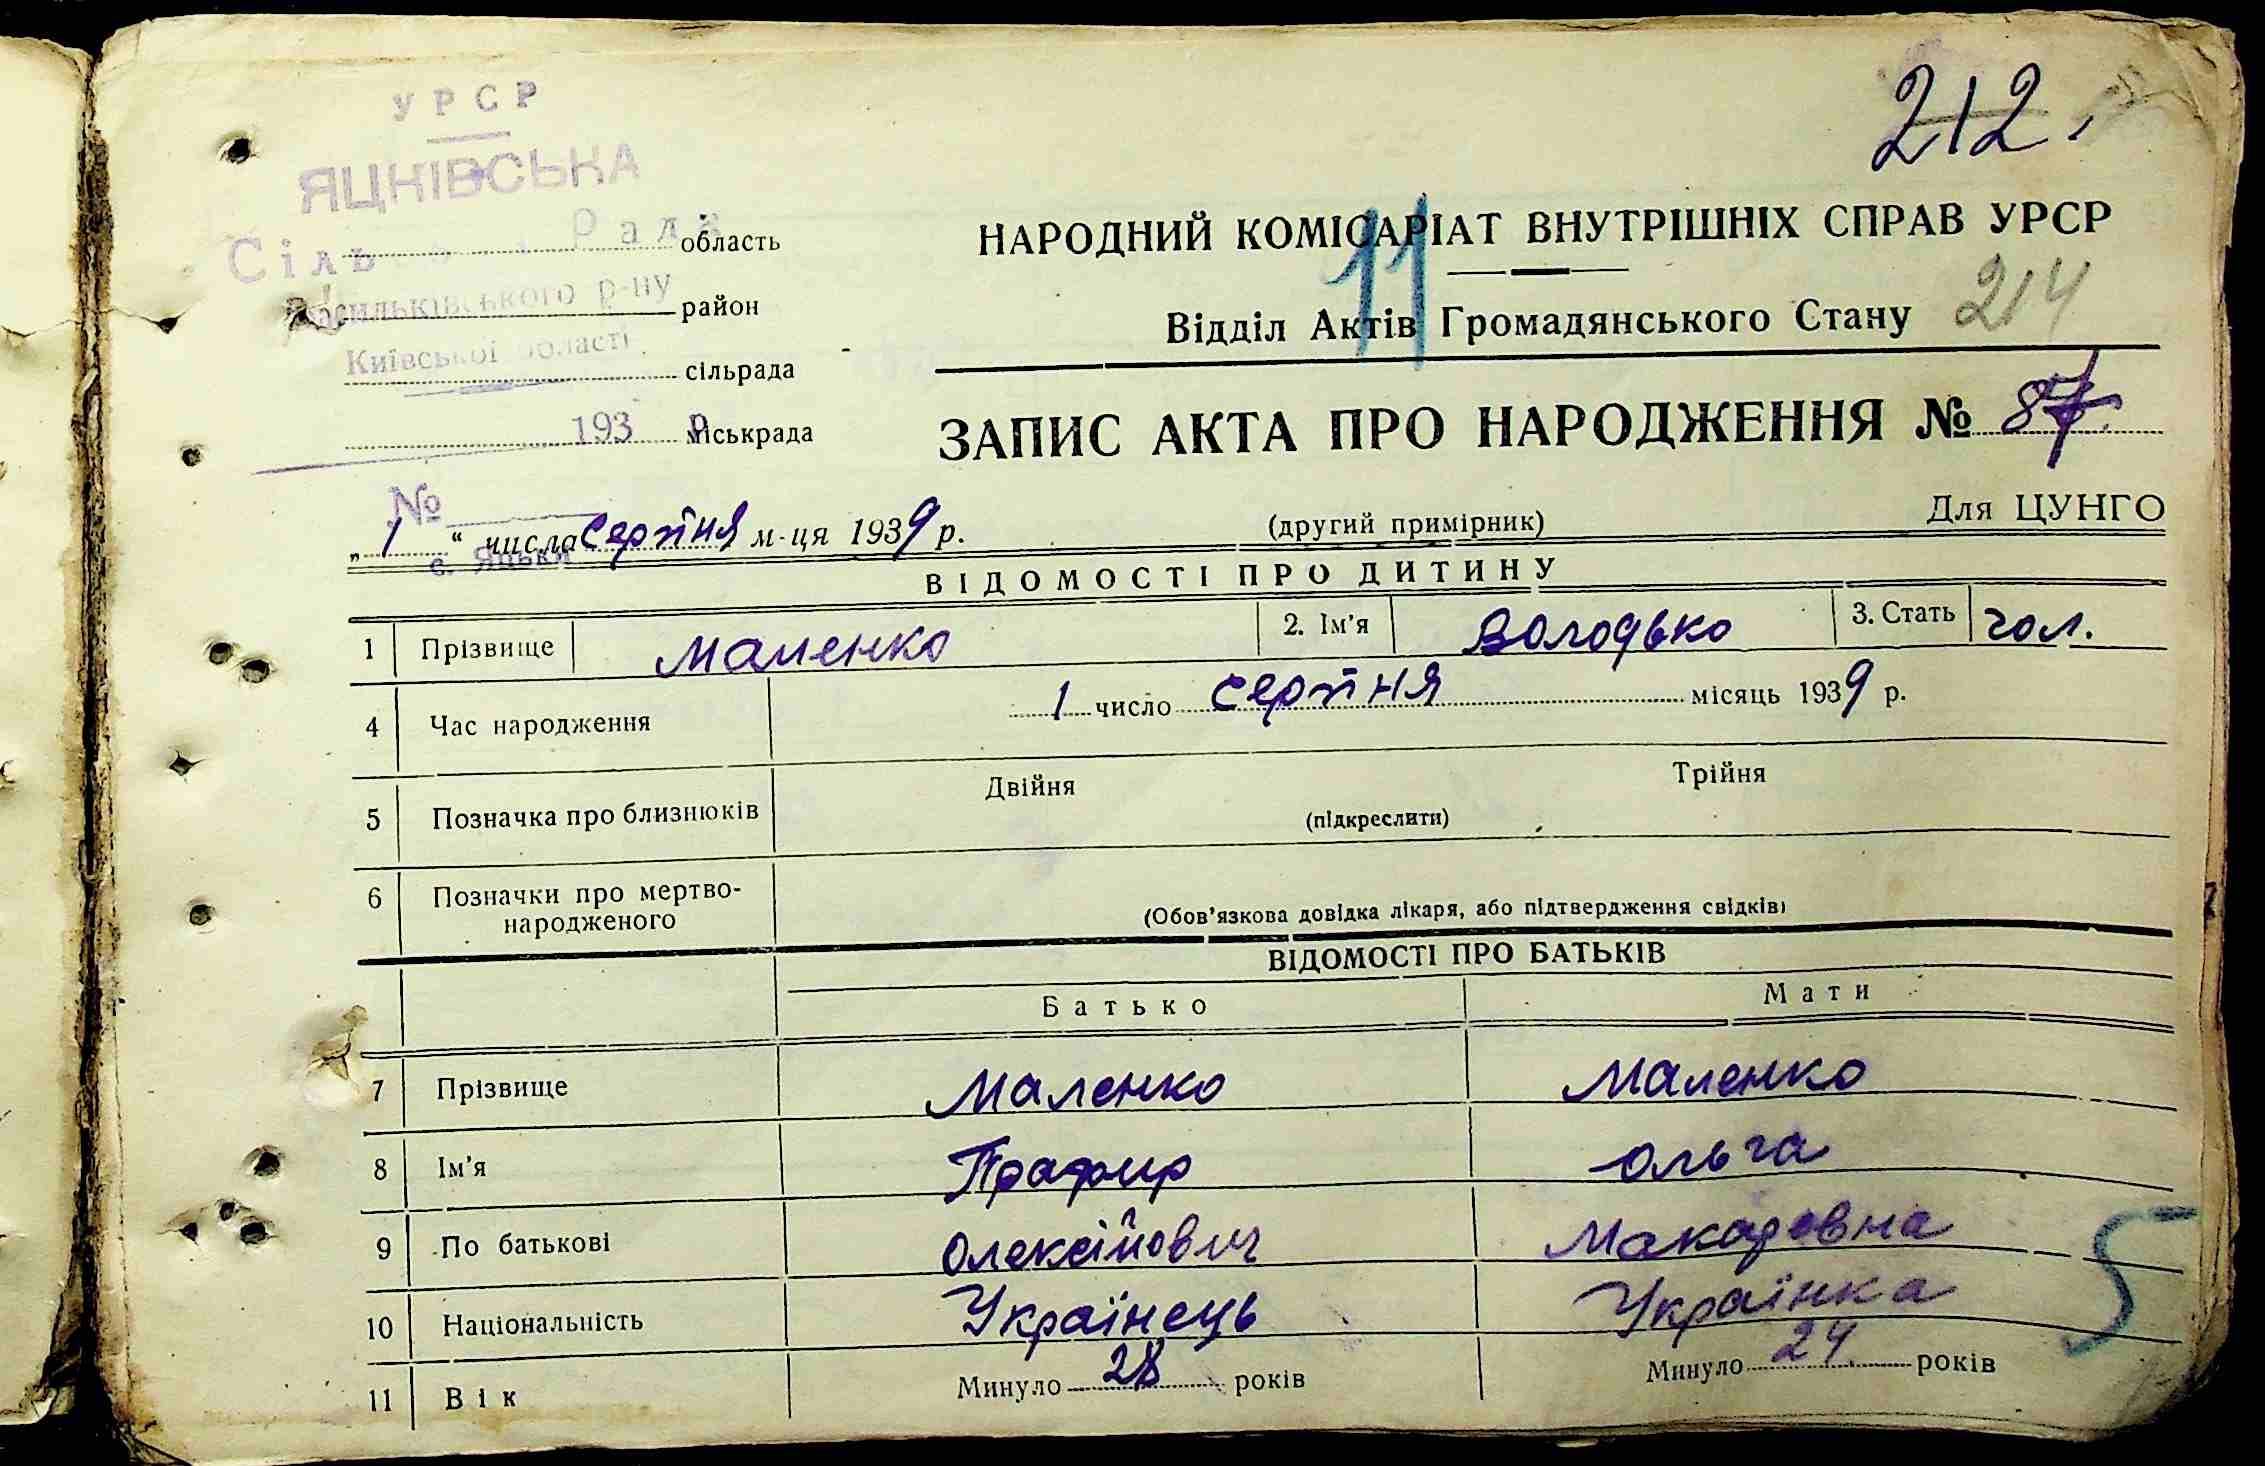 212.
УРСР
ЯЦКІВСЬКА
Сіль Рада
область
Васильківського р-ну
район
Київської області
сільрада
193 р.
міськрада
НАРОДНИЙ КОМІСАРІАТ ВНУТРІШНІХ СПРАВ УРСР
11
214
Відділ Актів Громадянського Стану
ЗАПИС АКТА ПРО НАРОДЖЕННЯ № 87.
№
с. Яцьки
„ 1 “ числа серпня м-ця 1939 р.
(другий примірник)
Для ЦУНГО
ВІДОМОСТІ ПРО ДИТИНУ
1 Прізвище Маленко 2. Ім'я Володько 3. Стать чол.
4 Час народження 1 число серпня місяць 1939 р.
5 Позначка про близнюків Двійня Трійня
(підкреслити)
6 Позначки про мертво-
народженого
(Обов'язкова довідка лікаря, або підтвердження свідків)
ВІДОМОСТІ ПРО БАТЬКІВ
Батько Мати
7 Прізвище Маленко Маленко
8 Ім'я Прафир Ольга
9 По батькові Олексійович Макаровна
10 Національність Українець Українка
5
11 Вік Минуло 28 років Минуло 24 років